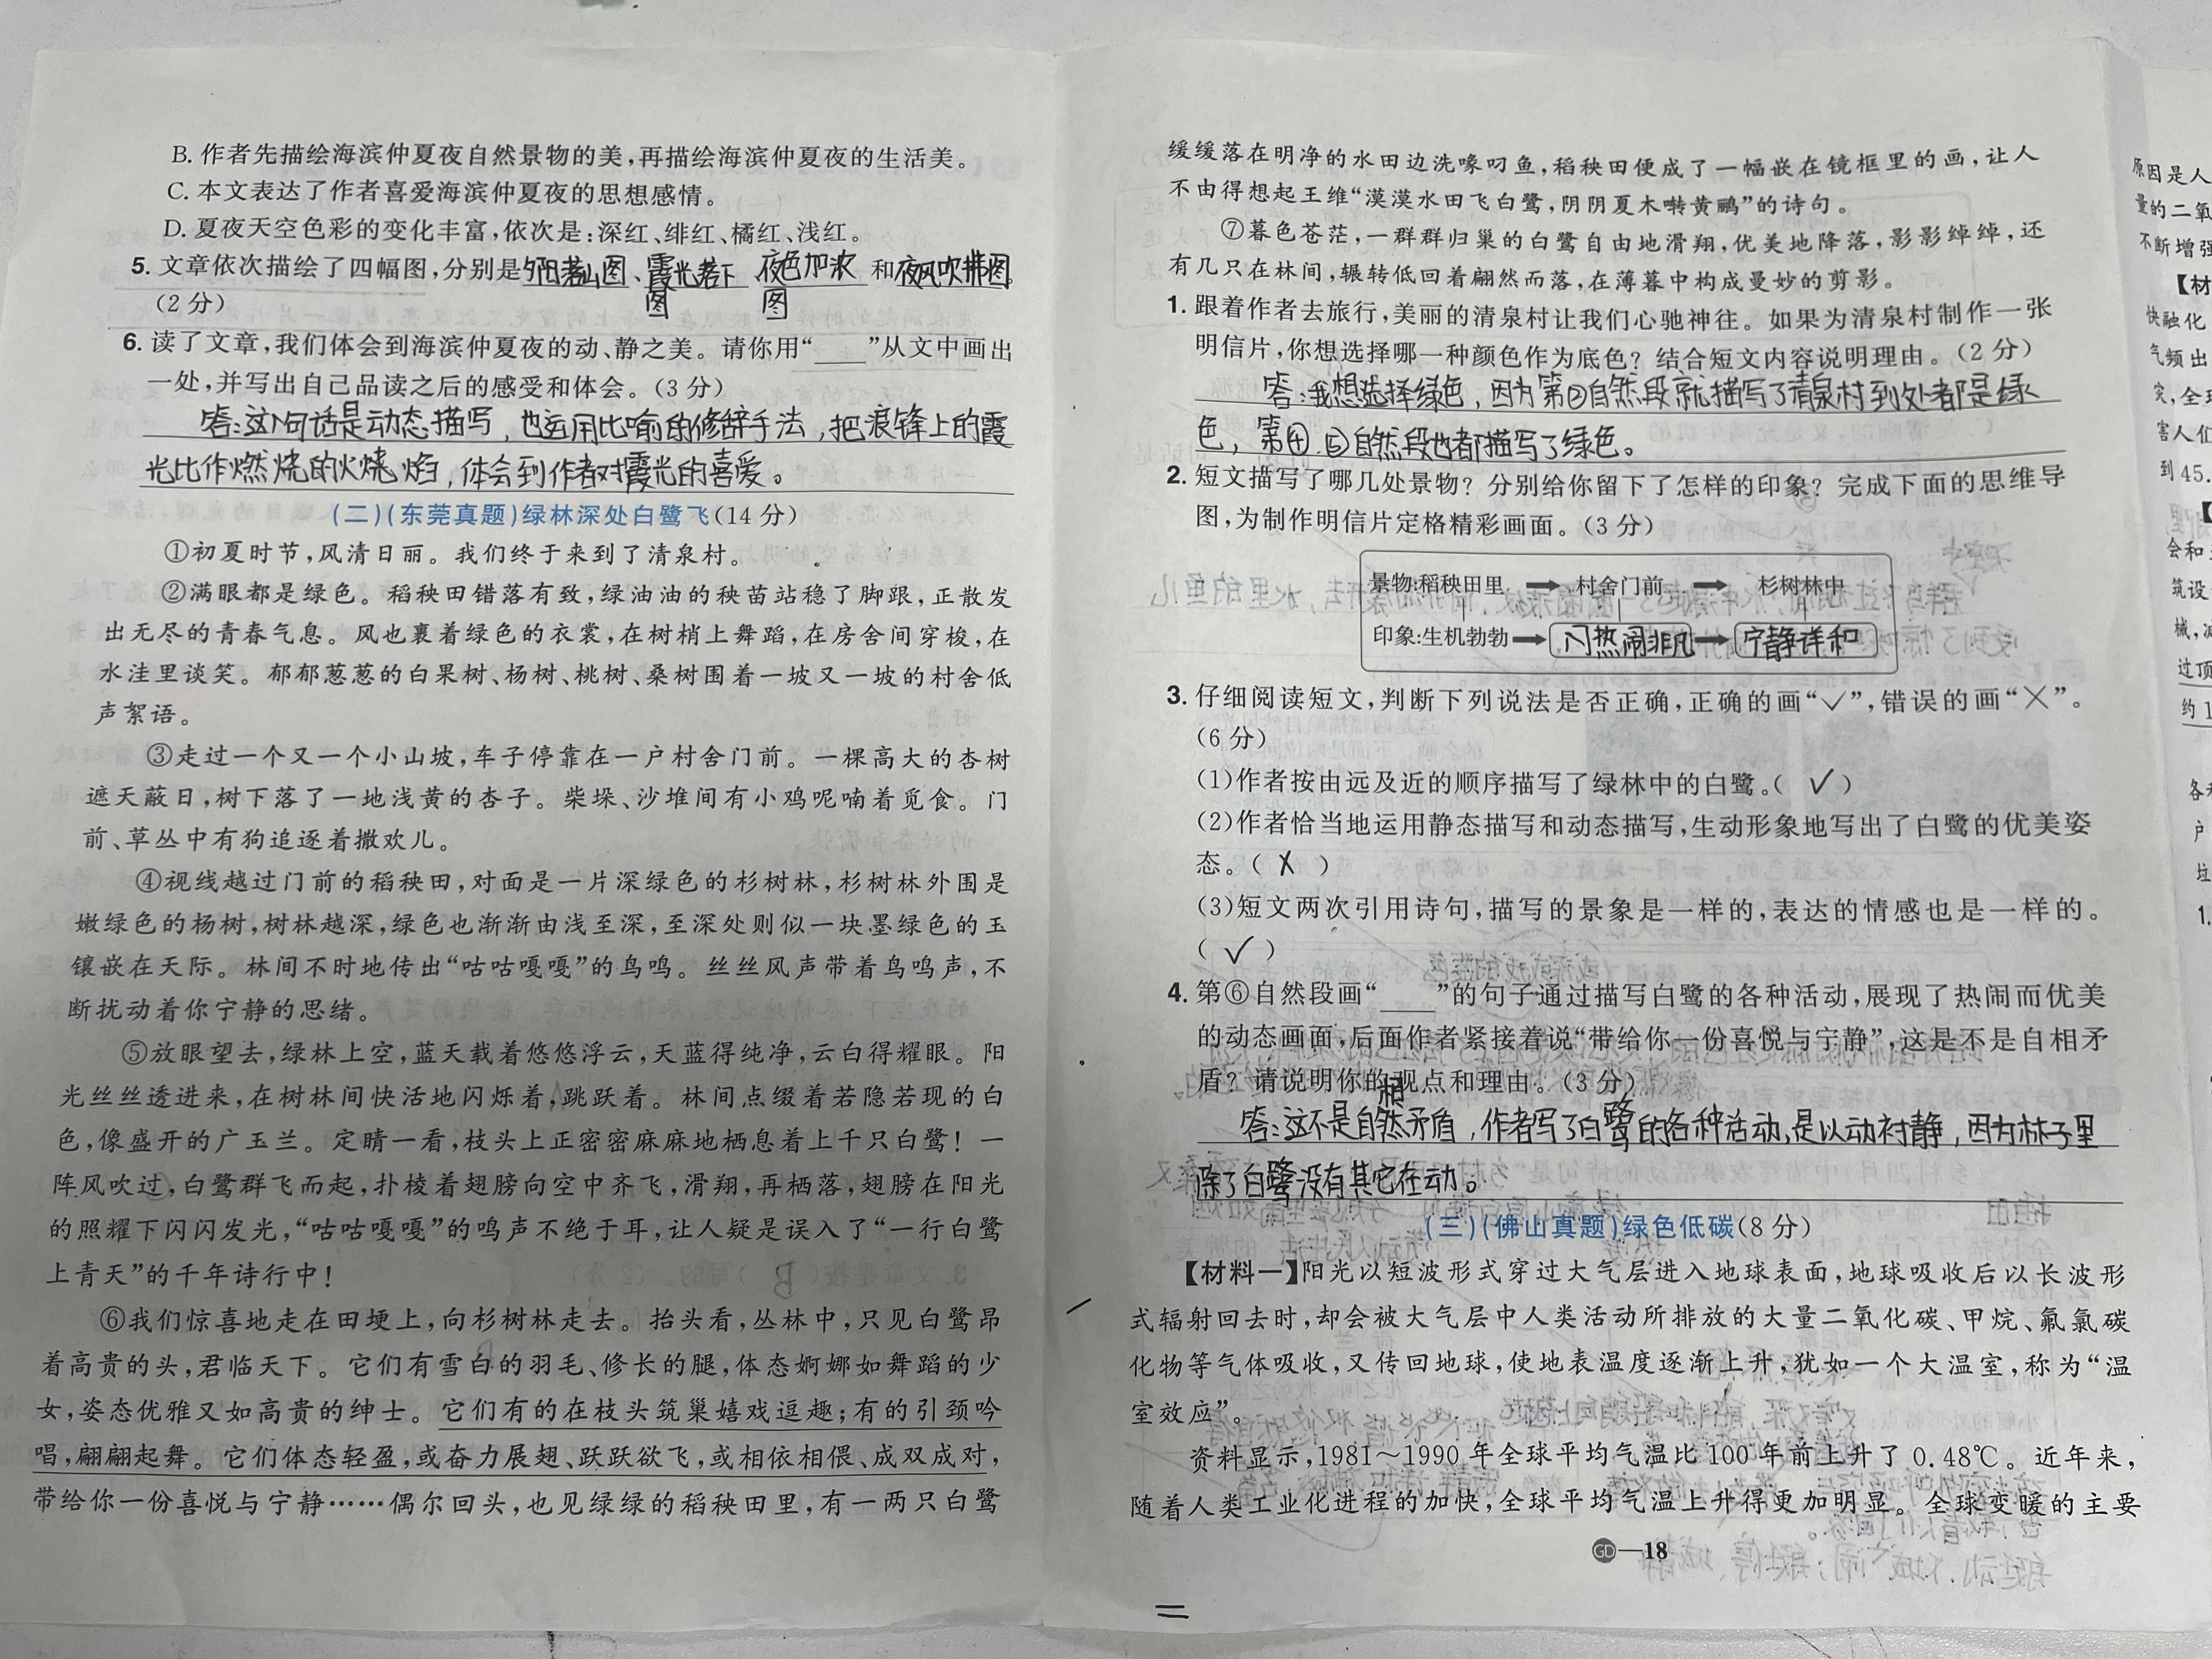 B. 作者先描绘海滨仲夏夜自然景物的美,再描绘海滨仲夏夜的生活美。
C. 本文表达了作者喜爱海滨仲夏夜的思想感情。
D. 夏夜天空色彩的变化丰富,依次是:深红、绯红、橘红、浅红。
5. 文章依次描绘了四幅图,分别是夕阳落山图、霞光落下图、夜色加浓图和夜风吹拂图。
(2分)
6. 读了文章,我们体会到海滨仲夏夜的动、静之美。请你用“____”从文中画出
一处,并写出自己品读之后的感受和体会。(3分)
答:这句话是动态描写,也运用比喻的修辞手法,把浪锋上的霞
光比作燃烧的火烧焰,体会到作者对霞光的喜爱。
(二)(东莞真题)绿林深处白鹭飞(14分)
①初夏时节,风清日丽。我们终于来到了清泉村。
②满眼都是绿色。稻秧田错落有致,绿油油的秧苗站稳了脚跟,正散发
出无尽的青春气息。风也裹着绿色的衣裳,在树梢上舞蹈,在房舍间穿梭,在
水洼里谈笑。郁郁葱葱的白果树、杨树、桃树、桑树围着一坡又一坡的村舍低
声絮语。
③走过一个又一个小山坡,车子停靠在一户村舍门前。一棵高大的杏树
遮天蔽日,树下落了一地浅黄的杏子。柴垛、沙堆间有小鸡呢喃着觅食。门
前、草丛中有狗追逐着撒欢儿。
④视线越过门前的稻秧田,对面是一片深绿色的杉树林,杉树林外围是
嫩绿色的杨树,树林越深,绿色也渐渐由浅至深,至深处则似一块墨绿色的玉
镶嵌在天际。林间不时地传出“咕咕嘎嘎”的鸟鸣。丝丝风声带着鸟鸣声,不
断扰动着你宁静的思绪。
⑤放眼望去,绿林上空,蓝天载着悠悠浮云,天蓝得纯净,云白得耀眼。阳
光丝丝透进来,在树林间快活地闪烁着,跳跃着。林间点缀着若隐若现的白
色,像盛开的广玉兰。定睛一看,枝头上正密密麻麻地栖息着上千只白鹭!一
阵风吹过,白鹭群飞而起,扑棱着翅膀向空中齐飞,滑翔,再栖落,翅膀在阳光
的照耀下闪闪发光,“咕咕嘎嘎”的鸣声不绝于耳,让人疑是误入了“一行白鹭
上青天”的千年诗行中!
⑥我们惊喜地走在田埂上,向杉树林走去。抬头看,丛林中,只见白鹭昂
着高贵的头,君临天下。它们有雪白的羽毛、修长的腿,体态婀娜如舞蹈的少
女,姿态优雅又如高贵的绅士。它们有的在枝头筑巢嬉戏逗趣;有的引颈吟
唱,翩翩起舞。它们体态轻盈,或奋力展翅、跃跃欲飞,或相依相偎、成双成对,
带给你一份喜悦与宁静……偶尔回头,也见绿绿的稻秧田里,有一两只白鹭
缓缓落在明净的水田边洗喙叼鱼,稻秧田便成了一幅嵌在镜框里的画,让人
不由得想起王维“漠漠水田飞白鹭,阴阴夏木啭黄鹂”的诗句。
⑦暮色苍茫,一群群归巢的白鹭自由地滑翔,优美地降落,影影绰绰,还
有几只在林间,辗转低回着翩然而落,在薄暮中构成曼妙的剪影。
1. 跟着作者去旅行,美丽的清泉村让我们心驰神往。如果为清泉村制作一张
明信片,你想选择哪一种颜色作为底色?结合短文内容说明理由。(2分)
答:我想选择绿色,因为第②自然段就描写了清泉村到处都是绿
色,第④、⑤自然段也都描写了绿色。
2. 短文描写了哪几处景物?分别给你留下了怎样的印象?完成下面的思维导
图,为制作明信片定格精彩画面。(3分)
景物:稻秧田里 → 村舍门前 → 杉树林中
印象:生机勃勃 → 热闹非凡 → 宁静详和
3. 仔细阅读短文,判断下列说法是否正确,正确的画“✓”,错误的画“×”。
(6分)
(1)作者按由远及近的顺序描写了绿林中的白鹭。( ✓ )
(2)作者恰当地运用静态描写和动态描写,生动形象地写出了白鹭的优美姿
态。( × )
(3)短文两次引用诗句,描写的景象是一样的,表达的情感也是一样的。
( ✓ )
4. 第⑥自然段画“____”的句子通过描写白鹭的各种活动,展现了热闹而优美
的动态画面,后面作者紧接着说“带给你一份喜悦与宁静”,这是不是自相矛
盾?请说明你的观点和理由。(3分)
答:这不是自相矛盾,作者写了白鹭的各种活动,是以动衬静,因为林子里
除了白鹭没有其它在动。
(三)(佛山真题)绿色低碳(8分)
【材料一】阳光以短波形式穿过大气层进入地球表面,地球吸收后以长波形
式辐射回去时,却会被大气层中人类活动所排放的大量二氧化碳、甲烷、氟氯碳
化物等气体吸收,又传回地球,使地表温度逐渐上升,犹如一个大温室,称为“温
室效应”。
资料显示,1981～1990年全球平均气温比100年前上升了0.48℃。近年来,
随着人类工业化进程的加快,全球平均气温上升得更加明显。全球变暖的主要
GD—18
原因是人
量的二氧
不断增强
【材
快融化
气频出
灾,全球
害人们
到45.
【
会和
筑设
械,减
过顶
约1
各
户
垃
1.